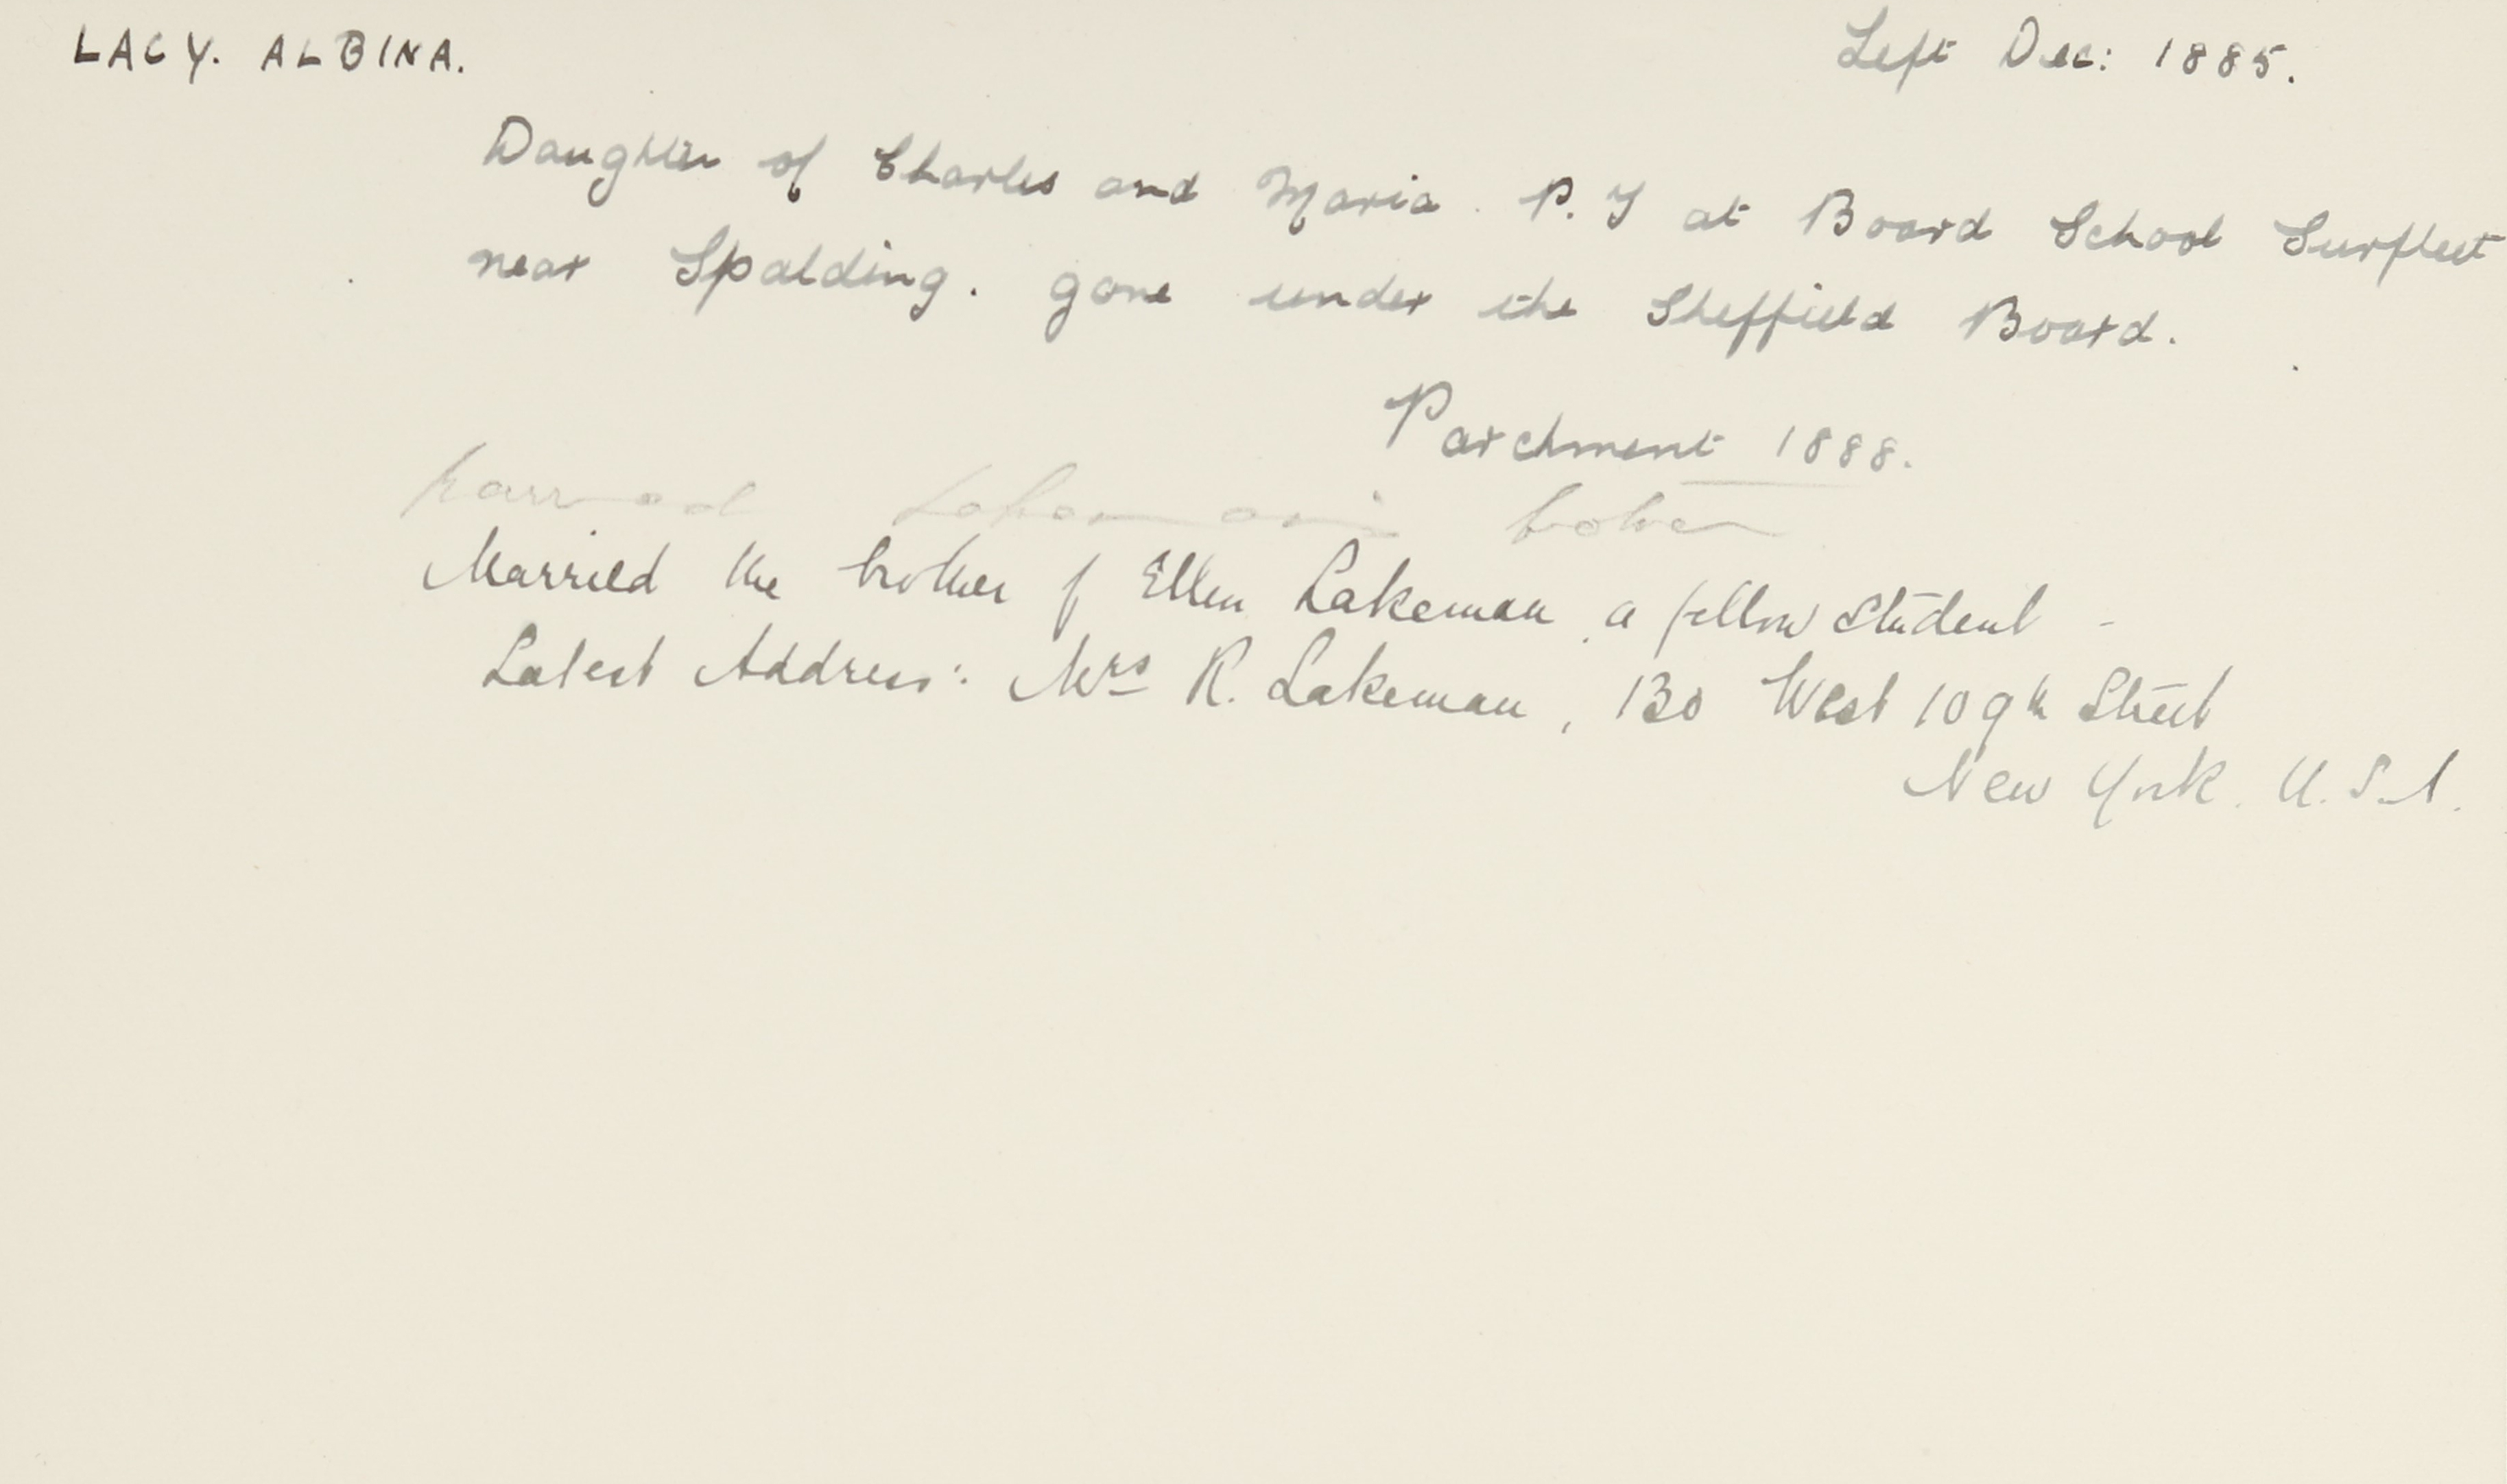 LACY. ALBINA.
Left Dec: 1885.
Daughter of Charles and Maria. P. T at Board School Surfleet
near Spalding. gone under the Sheffield Board.
Parchment 1888.
Married the brother of Ellen Lakeman, a fellow student -
Latest Address: Mrs R. Lakeman, 130 West 109th Street
New York. U.S.A.